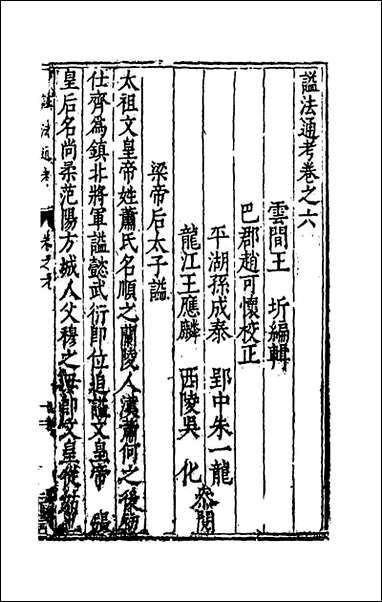 諡法通考卷之六
雲間王 圻編輯
巴郡趙可懷校正
平湖孫成泰 郢中朱一龍
龍江王應麟 西陵吳 化 叅閱
梁帝后太子諡
太祖文皇帝姓蕭氏名順之蘭陵人漢蕭何之後
仕齊為鎮北將軍諡懿武衍即位追諡文皇帝 張
皇后名尚柔范陽方城人父穆之母即文皇從姑
諡法通考 卷之六